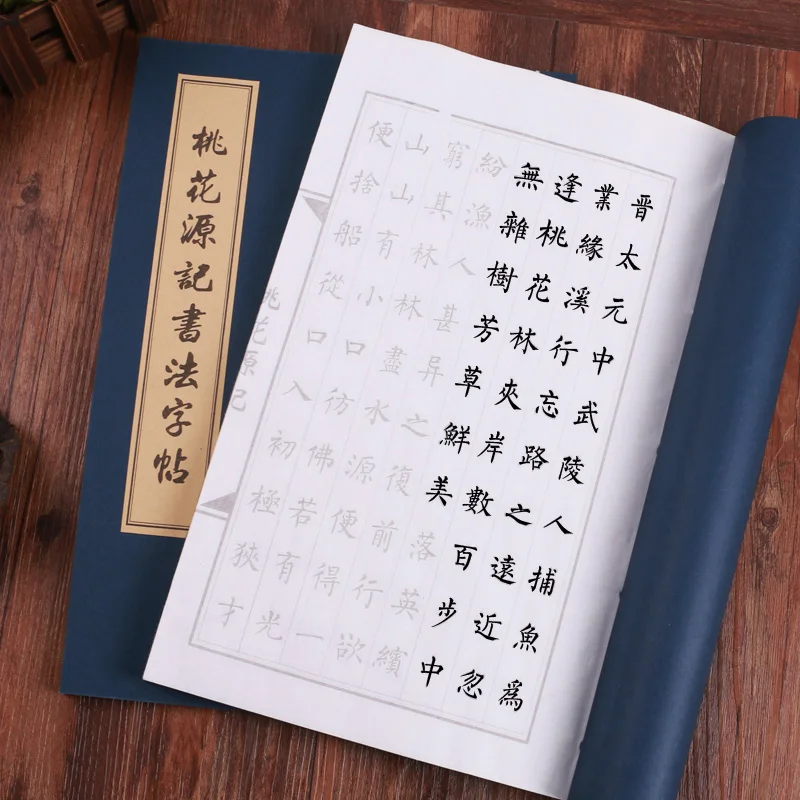 桃花源記書法字帖
晋太元中武陵人捕魚爲
業緣溪行忘路之遠近忽
逢桃花林夾岸數百步中
無雜樹芳草鮮美落英繽
紛漁人甚异之復前行欲
窮其林林盡水源便得一
山山有小口彷佛若有光
便捨船從口入初極狹才
桃花源記